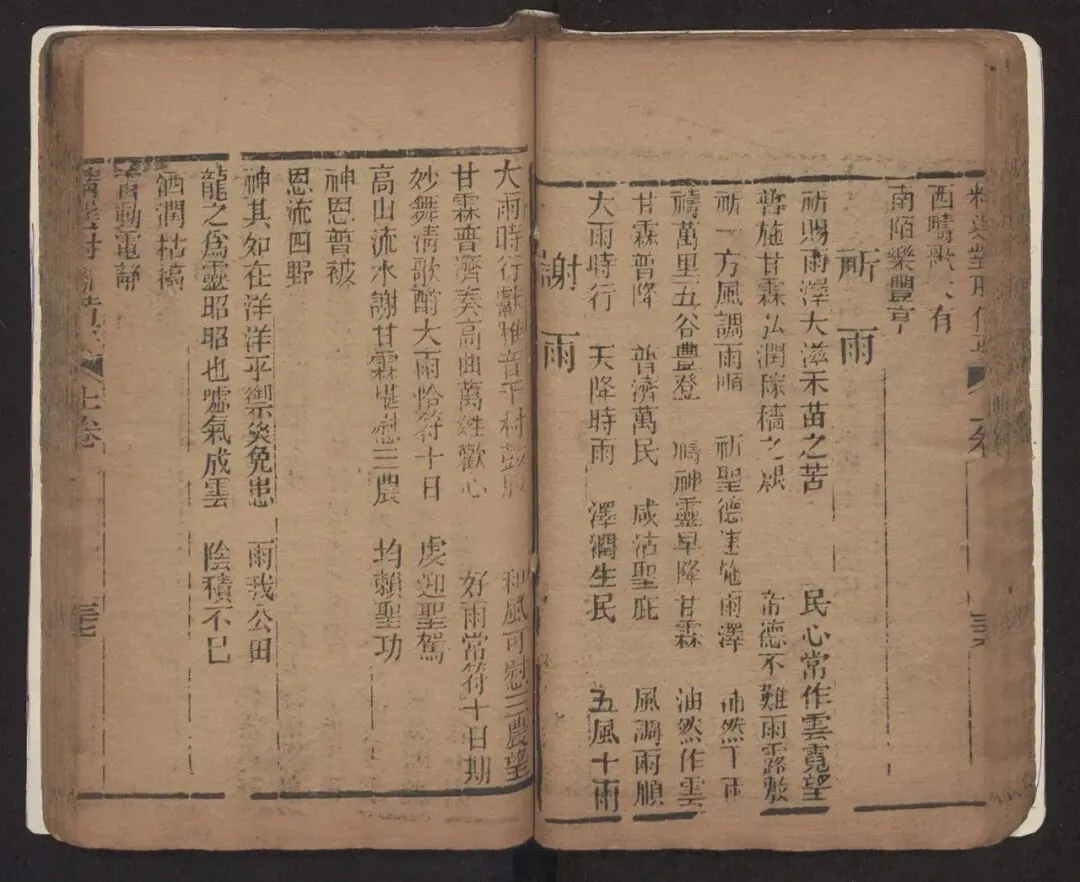 西疇歌大有
南陌樂豐亨
祈雨
祈賜雨澤大滋禾苗之苦 民心常作雲霓望
普施甘霖弘潤稼穡之 帝德不難雨露敷
祈一方風調雨順 祈聖德速施雨澤 沛然下雨
禱萬里五谷豊登 禱神靈早降甘霖 油然作雲
甘霖普降 普濟萬民 咸沾聖庇 風調雨順
大雨時行 天降時雨 澤潤生民 五風十雨
謝雨
大雨時行獻雅音千村鼓 和風可慰三農望
甘霖普濟奏高曲萬姓歡心 好雨當符十日期
妙舞清歌酧大雨恰符十日 虔迎聖駕
高山流水謝甘霖堪慰三農 均賴聖功
神恩普被
恩流四野
神其如在洋洋乎禦災免患 雨我公田
龍之爲靈昭昭也噓氣成雲 陰積不已
洒潤枯槁
雷動電靜
上卷